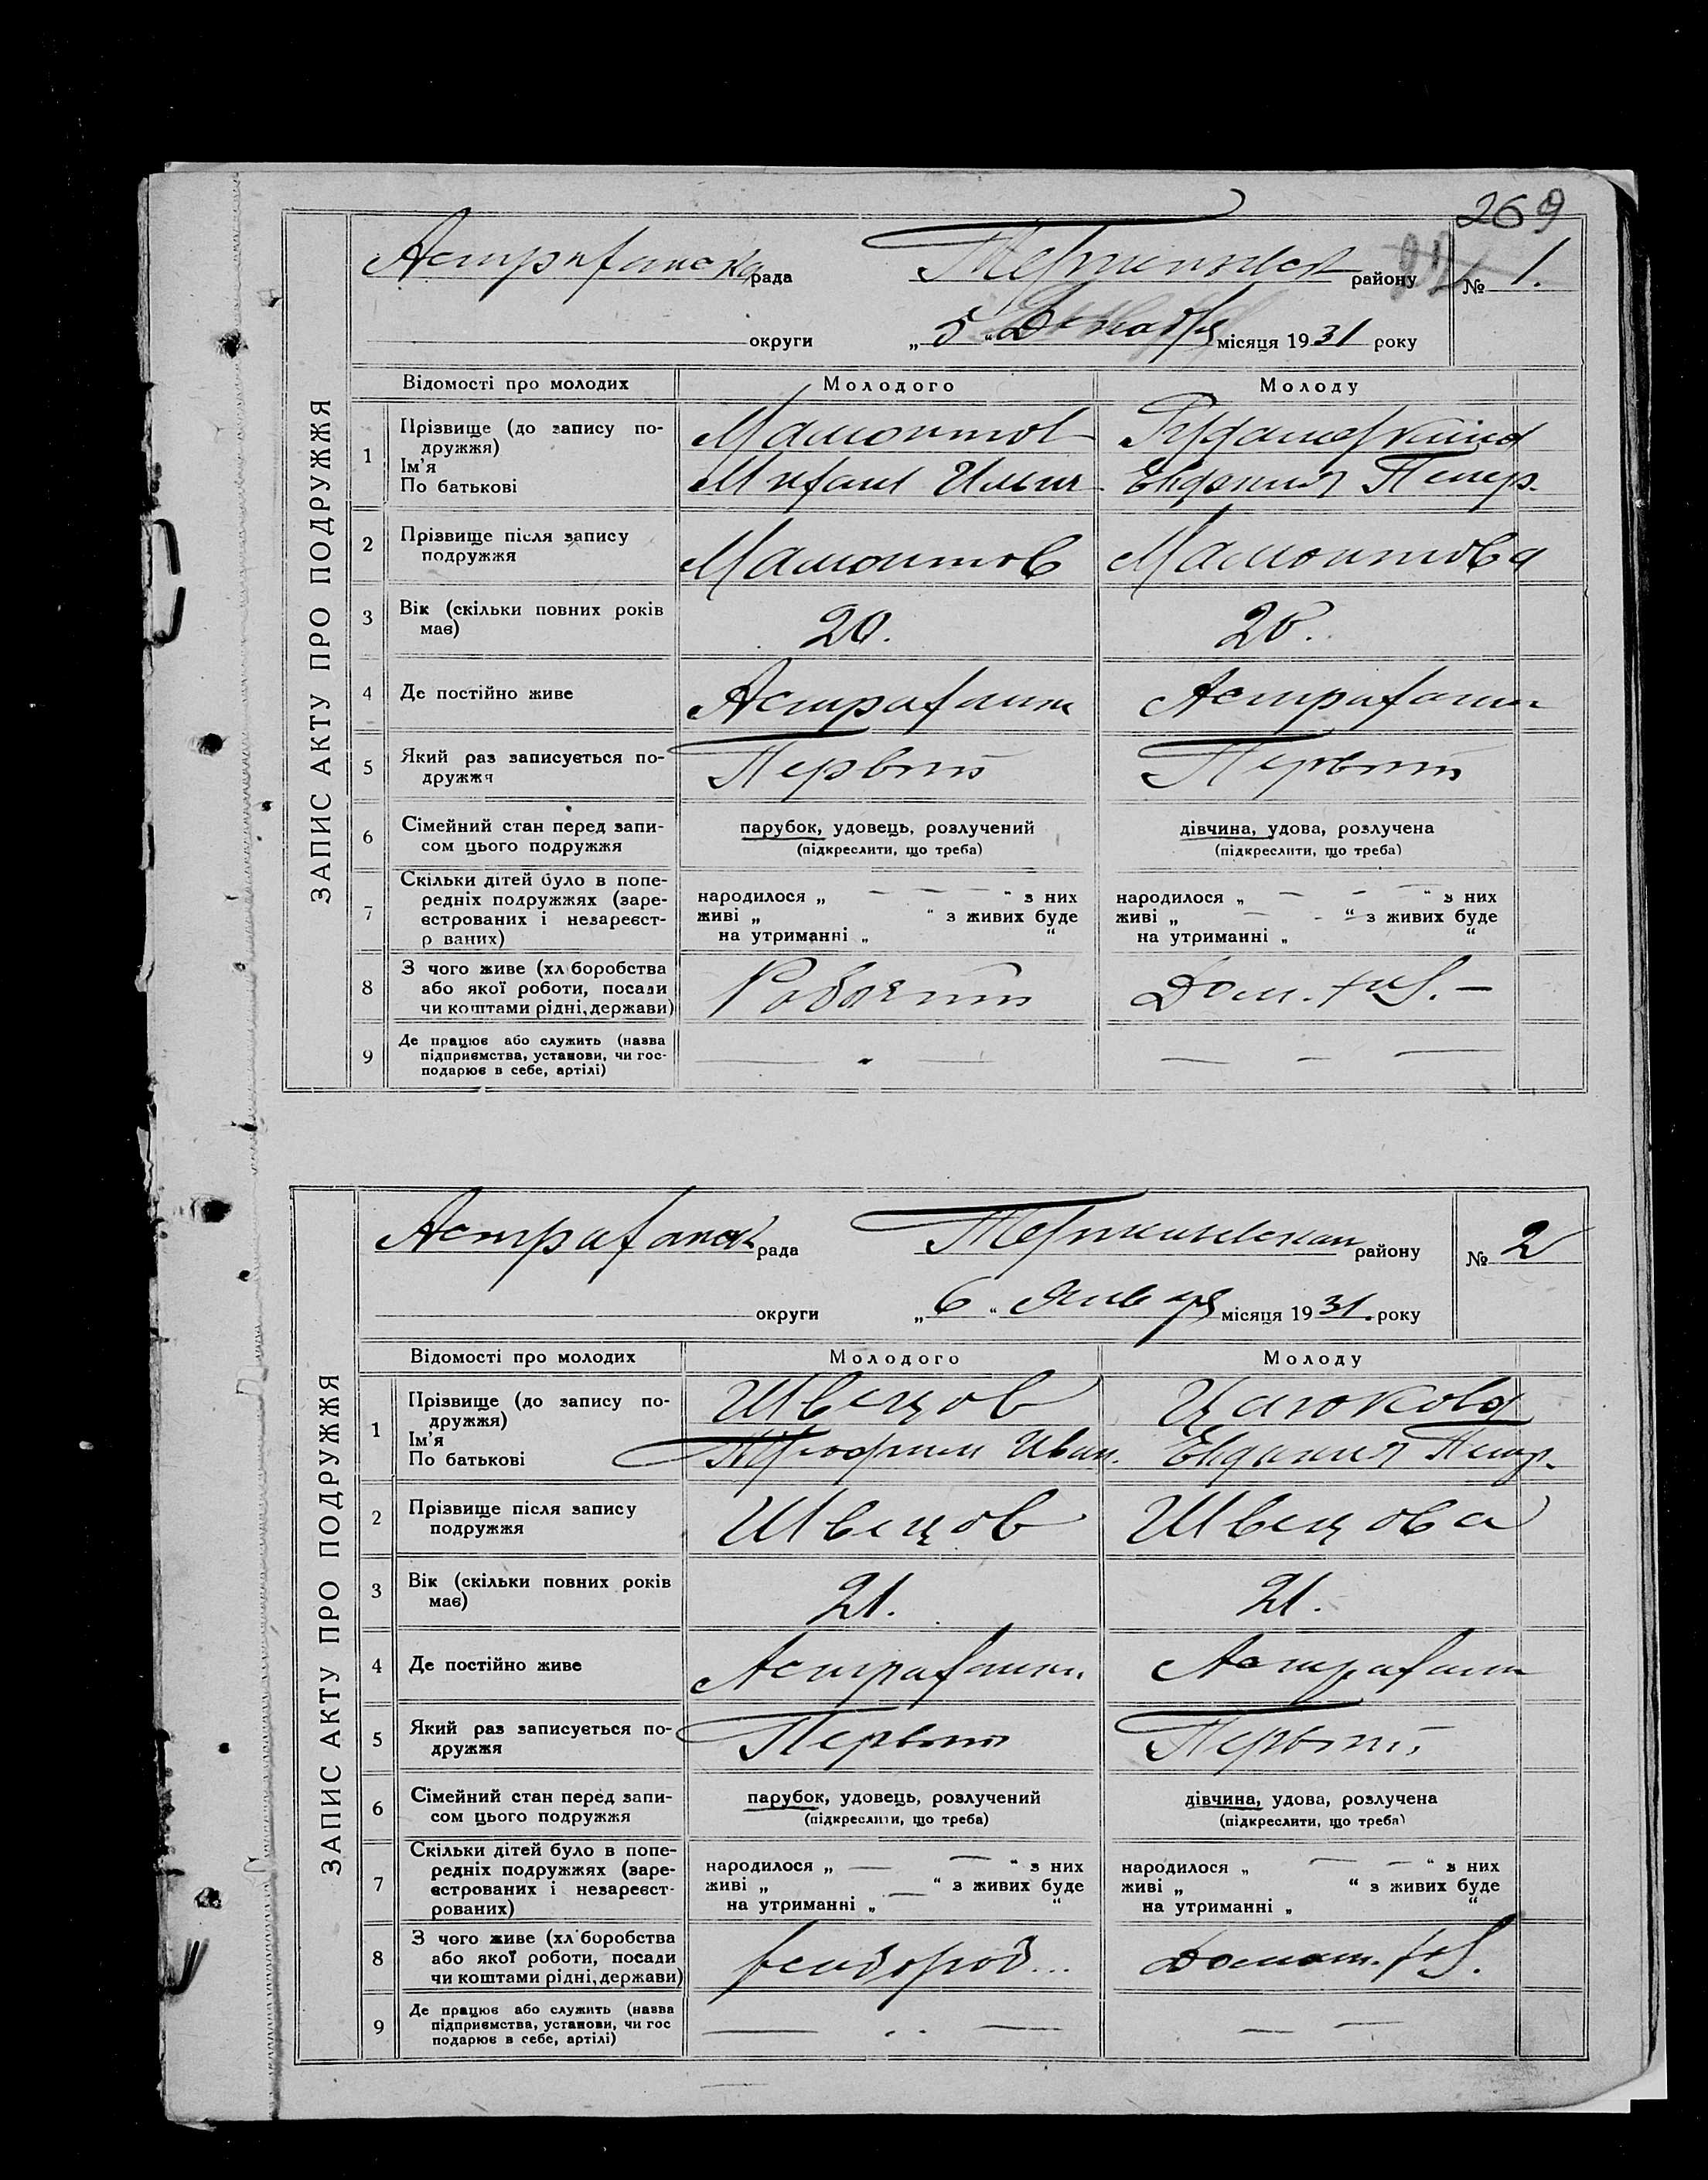 269
Астраханска рада района № 1.
округи „5“ Декабря місяця 1931 року
ЗАПИС АКТУ ПРО ПОДРУЖЖЯ
Відомості про молодих Молодого Молоду
1 Прізвище (до запису по-
дружжя)
Ім'я
По батькові
Мамонтов
Михаил Ильич Евфимия Петр.
2 Прізвище після запису
подружжя
Мамонтов Мамонтова
3 Вік (скільки повних років
має)
20. 20.
4 Де постійно живе Астраханка Астраханка
5 Який раз записується по-
дружжя
Первый Первый
6 Сімейний стан перед запи-
сом цього подружжя
парубок, удовець, розлучений
(підкреслити, що треба)
дівчина, удова, розлучена
(підкреслити, що треба)
7 Скільки дітей було в попе-
редніх подружжях (заре-
єстрованих і незареєст-
р ваних)
народилося „ — — — “ з них
живі „ “ з живих буде
на утриманні „ “
народилося „ — - — “ з них
живі „ — - “ з живих буде
на утриманні „ “
8 З чого живе (хл боробства
або якої роботи, посади
чи коштами рідні, держави)
Рабочий Дом. хоз. —
9 Де працює або служить (назва
підприємства, установи, чи гос-
подарює в себе, артілі)
— - — — — —
Астраханск рада району № 2
округи „6“ Января місяця 1931. року
ЗАПИС АКТУ ПРО ПОДРУЖЖЯ
Відомості про молодих Молодого Молоду
1 Прізвище (до запису по-
дружжя)
Ім'я
По батькові
Швецов
Трофим Иван. Петр.
2 Прізвище після запису
подружжя
Швецов Швецова
3 Вік (скільки повних років
має)
21. 21.
4 Де постійно живе Астраханка Астрахан
5 Який раз записується по-
дружжя
Первый Первый
6 Сімейний стан перед запи-
сом цього подружжя
парубок, удовець, розлучений
(підкреслити, що треба)
дівчина, удова, розлучена
(підкреслити, що треба)
7 Скільки дітей було в попе-
редніх подружжях (заре-
єстрованих і незареєст-
рованих)
народилося „ — — “ з них
живі „ — “ з живих буде
на утриманні „ “
народилося „ — — “ з них
живі „ “ з живих буде
на утриманні „ “
8 З чого живе (хл боробства
або якої роботи, посади
чи коштами рідні, держави)
Домаш. хоз.
9 Де працює або служить (назва
підприємства, установи, чи гос
подарює в себе, артілі)
— - - — — —